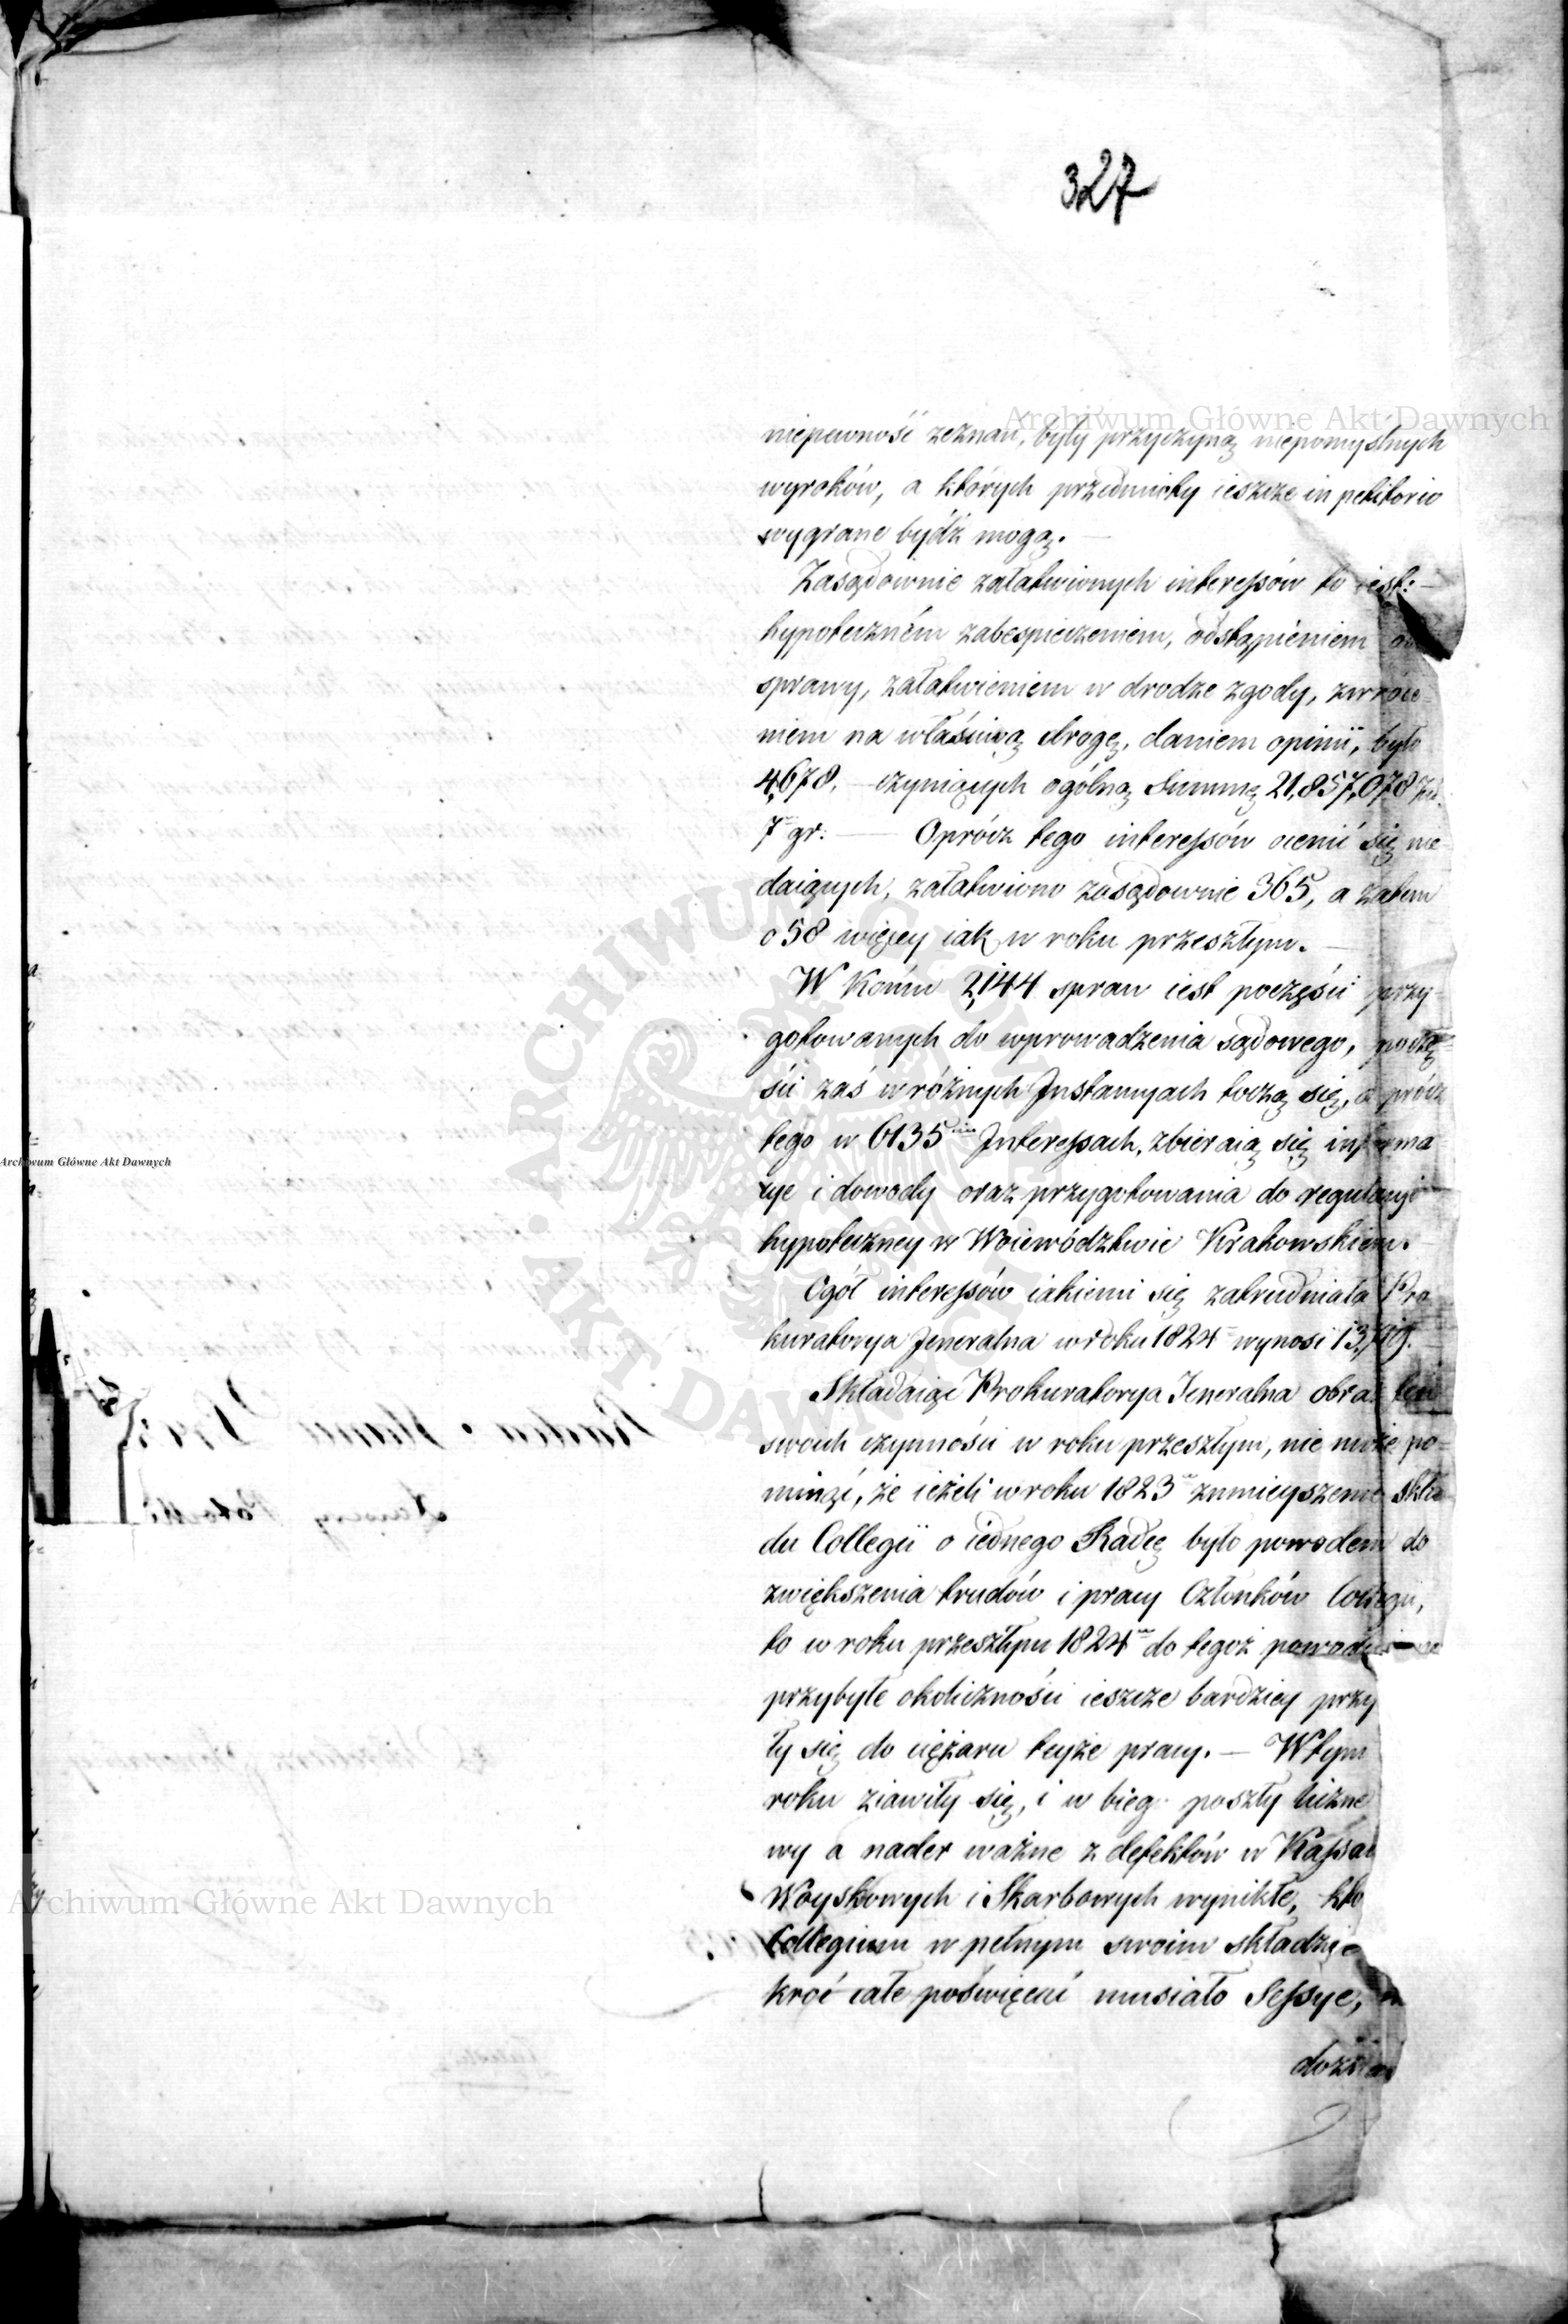 327
niepewność zeznań, były przyczyną niepomyślnych
wyroków, a których przedmioty ieszcze in petitorio
wygrane bydź mogą.
Zasądownie załatwionych interessów to iest:
hypoteczném zabespieczeniem, odstąpieniem od
sprawy, załatwieniem w drodze zgody, zwróce-
niem na właściwą drogę, daniem opinii, było
4,678, czyniących ogólną Summę 21,857,078 Złp.
7 gr. — Oprócz tego interessów ocenić się nie
daiących, załatwiono zasądownie 365, a zatem
o 58 więcey iak w roku przeszłym.
W Końcu 2,144 spraw iest poczęści przy-
gotowanych do wprowadzenia sądowego, poczę-
ści zaś w różnych Instancyach toczą się, a prócz
tego w 6135 Interessach, zbieraią się informa
cye i dowody oraz przygotowania do regulacyi
hypoteczney w Woiewództwie Krakowskiem.
Ogół interessów iakiemi się zatrudniała Pro
kuratorya Jeneralna w roku 1824 wynosi
Składaiąc Prokuratorya Jeneralna obraz ten
swoich czynności w roku przeszłym, nie może po-
minąć, że ieżeli w roku 1823 zmnieyszenie Skła
du Collegii o iednego Radcę było powodem do
zwiększenia trudów i pracy Członków Collegii,
to w roku przeszłym 1824 do tegoż powodu
przybyłe okoliczności ieszcze bardziey przy
ły się do ciężaru teyże pracy. — W tym
roku ziawiły się, i w bieg poszły liczne
wy a nader ważne z defektów w Kassac
Woyskowych i Skarbowych wynikłe, któ
Collegium w pełnym swoim składzie
kroć całe poświęcać musiało Sessye,
Archiwum Główne Akt Dawnych
Archiwum Główne Akt Dawnych
Archiwum Główne Akt Dawnych